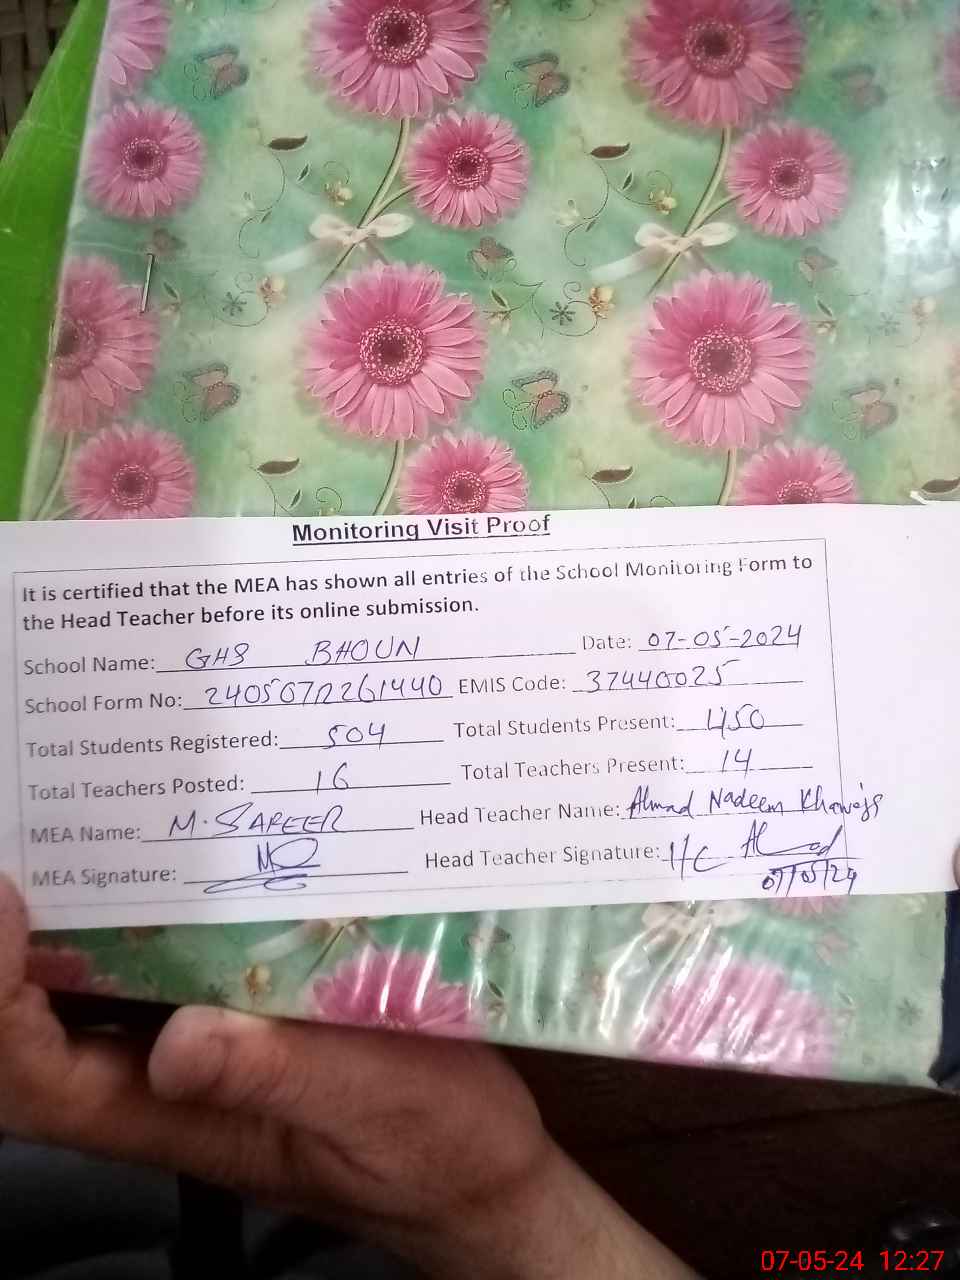 Monitoring Visit Proof
It is certified that the MEA has shown all entries of the School Monitoring Form to
the Head Teacher before its online submission.
School Name: GHS BHOUN Date: 07-05-2024
School Form No: EMIS Code: 37440025
Total Students Registered: 504 Total Students Present: 450
Total Teachers Posted: 16 Total Teachers Present: 14
MEA Name: M. SAFEER Head Teacher Name: Ahmad Nadeem Khawaja
MEA Signature: Head Teacher Signature: I/C
07/05/24
07-05-24 12:27